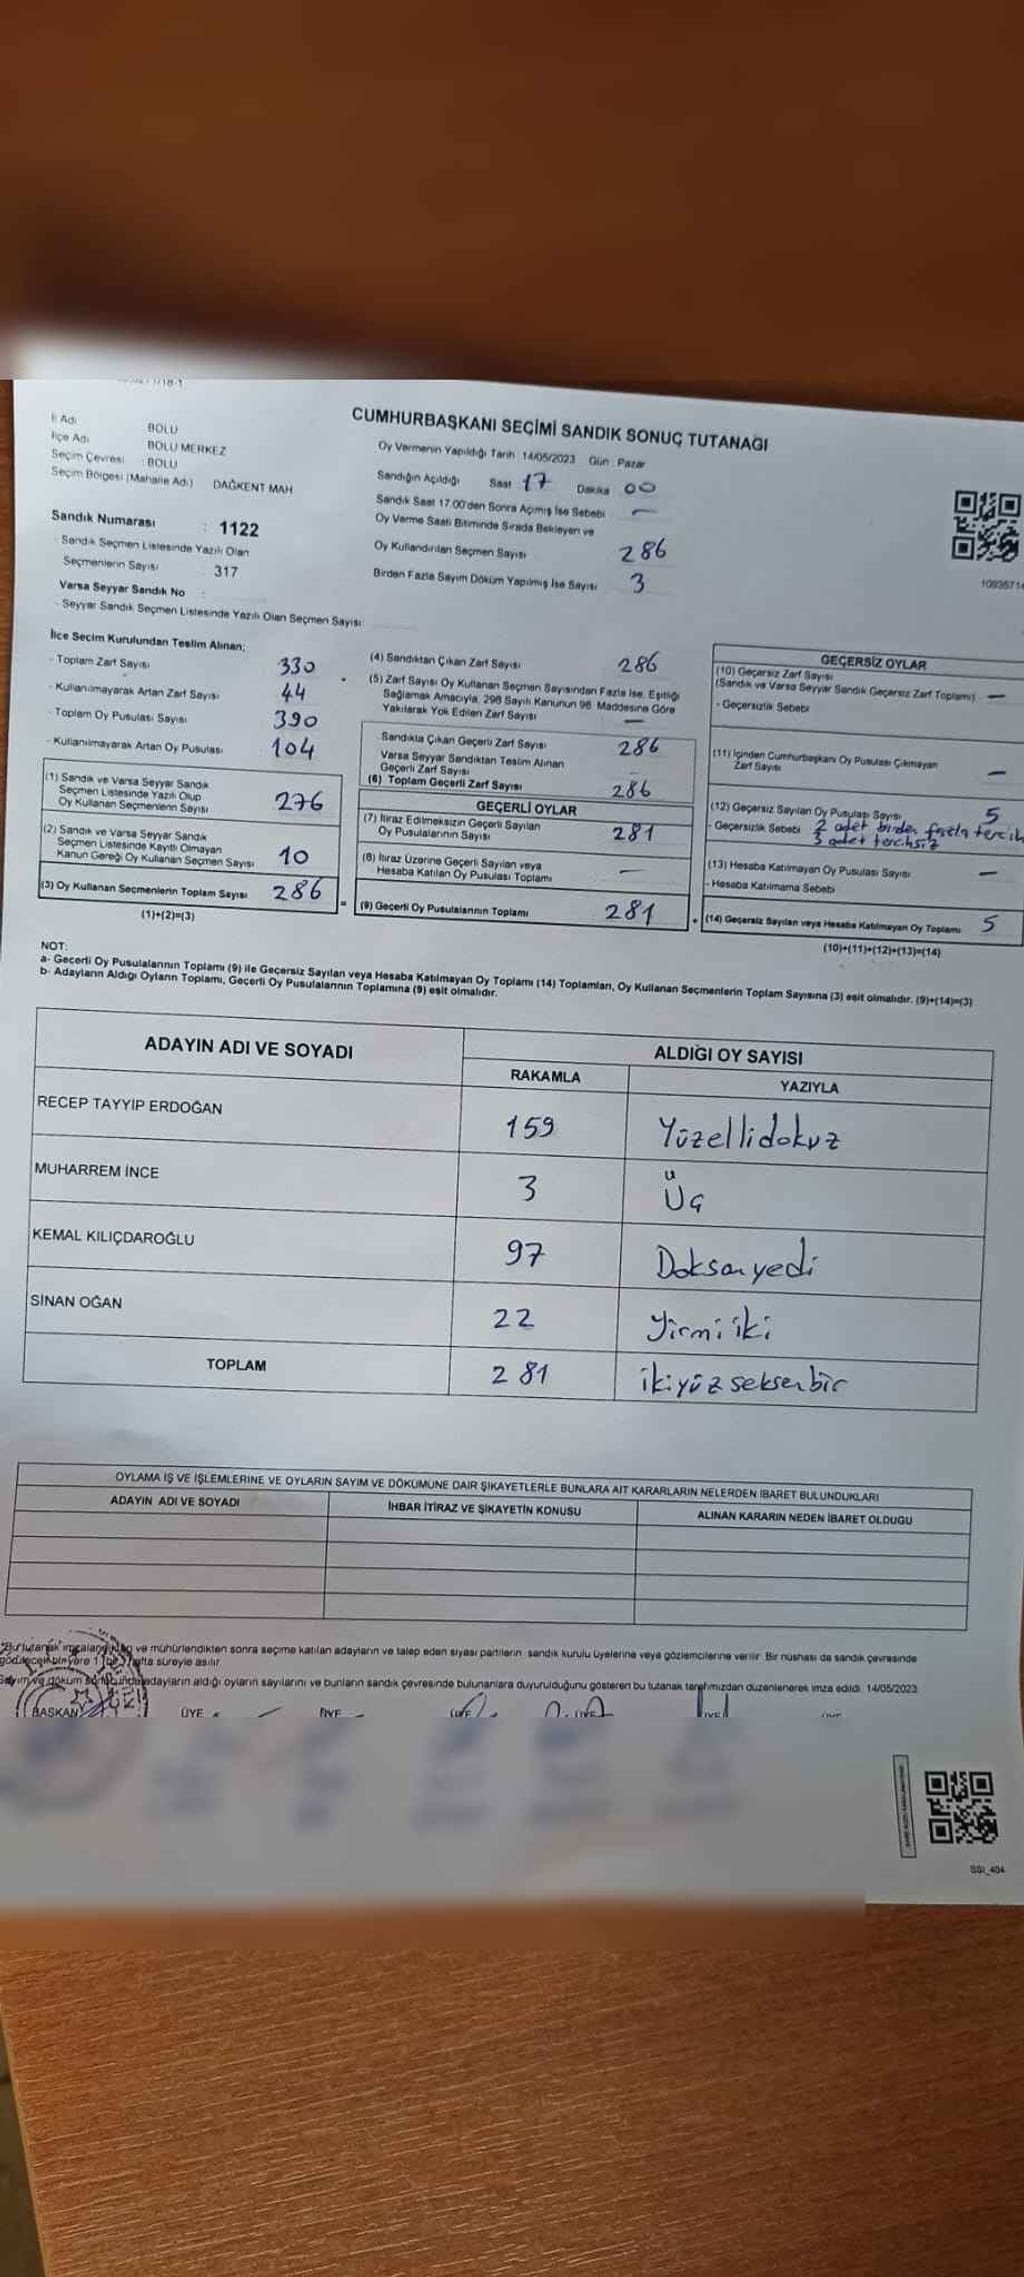 CUMHURBAŞKANI SEÇİMİ SANDIK SONUÇ TUTANAĞI
İl Adı BOLU
İlçe Adı BOLU MERKEZ
Seçim Çevresi : BOLU
Seçim Bölgesi (Mahalle Adı) DAĞKENT MAH
Sandık Numarası : 1122
- Sandık Seçmen Listesinde Yazılı Olan
Seçmenlerin Sayısı : 317
Varsa Seyyar Sandık No :
- Seyyar Sandık Seçmen Listesinde Yazılı Olan Seçmen Sayısı:
Oy Vermenin Yapıldığı Tarih 14/05/2023 Gün : Pazar
Sandığın Açıldığı Saat 17 Dakika 00
Sandık Saat 17.00'den Sonra Açımış İse Sebebi —
Oy Verme Saati Bitiminde Sırada Bekleyen ve
Oy Kullandırılan Seçmen Sayısı 286
Birden Fazla Sayım Döküm Yapılmış İse Sayısı 3
İlçe Seçim Kurulundan Teslim Alınan;
- Toplam Zarf Sayısı 330
- Kullanılmayarak Artan Zarf Sayısı 44
- Toplam Oy Pusulası Sayısı 390
- Kullanılmayarak Artan Oy Pusulası 104
(1) Sandık ve Varsa Seyyar Sandık
Seçmen Listesinde Yazılı Olup
Oy Kullanan Seçmenlerin Sayısı 276
(2) Sandık ve Varsa Seyyar Sandık
Seçmen Listesinde Kayıtlı Olmayan
Kanun Gereği Oy Kullanan Seçmen Sayısı 10
(3) Oy Kullanan Seçmenlerin Toplam Sayısı 286
(1)+(2)=(3)
(4) Sandıktan Çıkan Zarf Sayısı 286
(5) Zarf Sayısı Oy Kullanan Seçmen Sayısından Fazla İse, Eşitliği
Sağlamak Amacıyla, 298 Sayılı Kanunun 98. Maddesine Göre
Yakılarak Yok Edilen Zarf Sayısı —
Sandıkta Çıkan Geçerli Zarf Sayısı 286
Varsa Seyyar Sandıktan Teslim Alınan
Geçerli Zarf Sayısı
(6) Toplam Geçerli Zarf Sayısı 286
GEÇERLİ OYLAR
(7) İtiraz Edilmeksizin Geçerli Sayılan
Oy Pusulalarının Sayısı 281
(8) İtiraz Üzerine Geçerli Sayılan veya
Hesaba Katılan Oy Pusulası Toplamı —
= (9) Geçerli Oy Pusulalarının Toplamı 281
GEÇERSİZ OYLAR
(10) Geçersiz Zarf Sayısı
(Sandık ve Varsa Seyyar Sandık Geçersiz Zarf Toplamı) —
- Geçersizlik Sebebi
(11) İçinden Cumhurbaşkanı Oy Pusulası Çıkmayan
Zarf Sayısı —
(12) Geçersiz Sayılan Oy Pusulası Sayısı 5
- Geçersizlik Sebebi 2 adet birden fazla tercih
3 adet tercihsiz
(13) Hesaba Katılmayan Oy Pusulası Sayısı —
- Hesaba Katılmama Sebebi
+ (14) Geçersiz Sayılan veya Hesaba Katılmayan Oy Toplamı 5
(10)+(11)+(12)+(13)=(14)
NOT:
a- Geçerli Oy Pusulalarının Toplamı (9) ile Geçersiz Sayılan veya Hesaba Katılmayan Oy Toplamı (14) Toplamları, Oy Kullanan Seçmenlerin Toplam Sayısına (3) eşit olmalıdır. (9)+(14)=(3)
b- Adayların Aldığı Oyların Toplamı, Geçerli Oy Pusulalarının Toplamına (9) eşit olmalıdır.
ADAYIN ADI VE SOYADI ALDIĞI OY SAYISI
RAKAMLA YAZIYLA
RECEP TAYYİP ERDOĞAN 159 Yüzellidokuz
MUHARREM İNCE 3 Üç
KEMAL KILIÇDAROĞLU 97 Doksanyedi
SİNAN OĞAN 22 Yirmiiki
TOPLAM 281 ikiyüzseksenbir
OYLAMA İŞ VE İŞLEMLERİNE VE OYLARIN SAYIM VE DÖKÜMÜNE DAİR ŞİKAYETLERLE BUNLARA AİT KARARLARIN NELERDEN İBARET BULUNDUKLARI
ADAYIN ADI VE SOYADI İHBAR İTİRAZ VE ŞİKAYETİN KONUSU ALINAN KARARIN NEDEN İBARET OLDUĞU
"Bu tutanak imzalandıktan ve mühürlendikten sonra seçime katılan adayların ve talep eden siyasi partilerin sandık kurulu üyelerine veya gözlemcilerine verilir. Bir nüshası da sandık çevresinde
süreyle asılır.
Sayım ve döküm adayların aldığı oyların sayılarını ve bunların sandık çevresinde bulunanlara duyurulduğunu gösteren bu tutanak tarafımızdan düzenlenerek imza edildi. 14/05/2023
BAŞKAN ÜYE ÜYE ÜYE ÜYE ÜYE
SSI_404